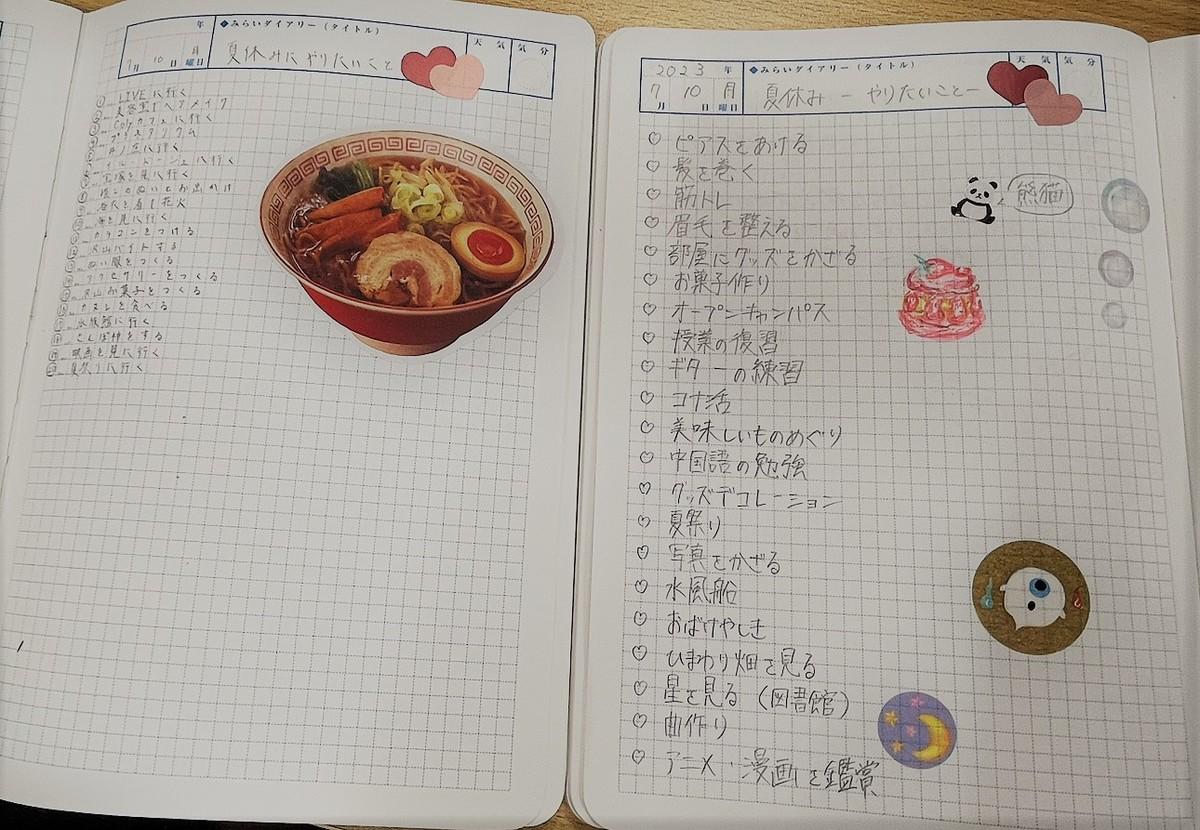 年
◆みらいダイアリー(タイトル)
天 気 気 分
7月 10日 月曜日
夏休みにやりたいこと
① LIVEに行く
② 美容室でヘアメイク
③ Colyカフェに行く
④
⑤ に行く
⑥ に行く
⑦ 宝塚を見に行く
⑧ のぬいとお出かけ
⑨ 浴衣を着て花火
⑩ 海を見に行く
⑪ カラコンをつける
⑫ 沢山バイトする
⑬ ぬい服をつくる
⑭ アクセサリーをつくる
⑮ 沢山お菓子をつくる
⑯ を食べる
⑰ 水族館に行く
⑱ をする
⑲ 映画を見に行く
⑳ 夏祭りに行く
2023年
◆みらいダイアリー(タイトル)
天 気 気 分
7月 10日 月曜日
夏休み －やりたいこと－
♡ ピアスをあける
♡ 髪を巻く
♡ 筋トレ
熊猫
♡ 眉毛を整える
♡ 部屋にグッズをかざる
♡ お菓子作り
♡ オープンキャンパス
♡ 授業の復習
♡ ギターの練習
♡ コナ活
♡ 美味しいものめぐり
♡ 中国語の勉強
♡ グッズデコレーション
♡ 夏祭り
♡ 写真をかざる
♡ 水風船
♡ おばけやしき
♡ ひまわり畑を見る
♡ 星を見る (図書館)
♡ 曲作り
♡ アニメ・漫画を鑑賞